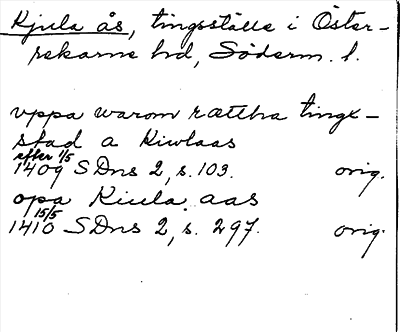 Kjula ås, tingsställe i Öster-
rekarne hd, Söderm. l.
uppa warom rættha tingx-
stad a Kiwlaas
efter 1/5
1409 SDns 2, s. 103. orig.
opa Kiula aas
15/5
1410 SDns 2, s. 297. orig.